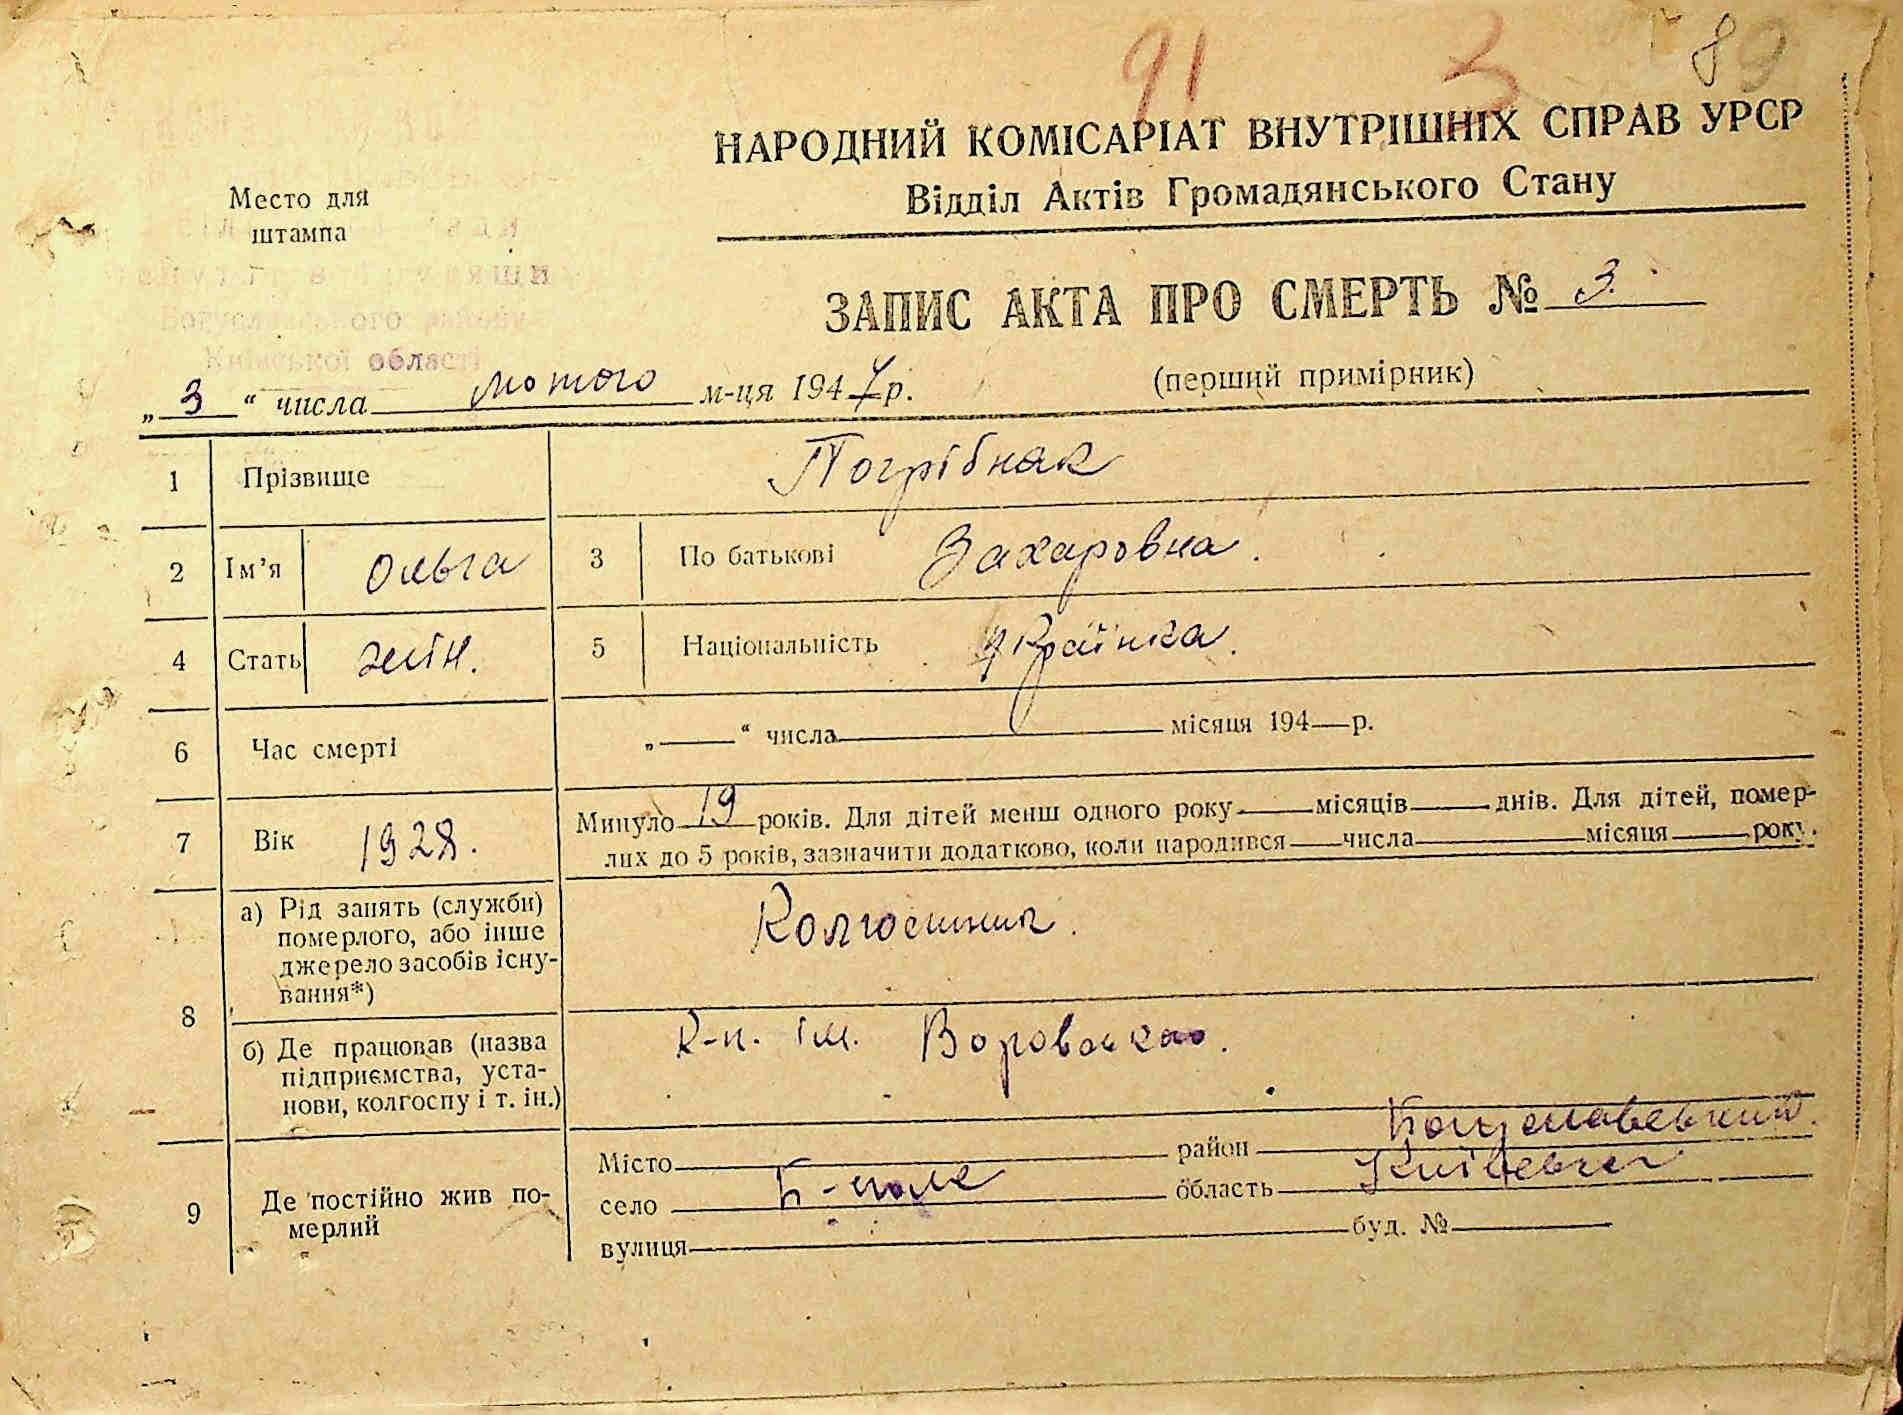 91 3 89
НАРОДНИЙ КОМІСАРІАТ ВНУТРІШНІХ СПРАВ УРСР
Відділ Актів Громадянського Стану
Место для
штампа
Київської області
ЗАПИС АКТА ПРО СМЕРТЬ № 3.
(перший примірник)
„ 3 “ числа лютого м-ця 1947 р.
1 Прізвище Погрібняк
2 Ім’я Ольга 3 По батькові Захаровна.
4 Стать жін. 5 Національність Українка.
6 Час смерті „ “ числа місяця 194 р.
7 Вік 1928. Минуло 19 років. Для дітей менш одного року місяців днів. Для дітей, помер-
лих до 5 років, зазначити додатково, коли народився числа місяця року.
8 а) Рід занять (служби)
померлого, або інше
джерело засобів існу-
вання*)
Колгоспник.
б) Де працював (назва
підприємства, уста-
нови, колгоспу і т. ін.)
К-п. ім. Воровського.
9 Де постійно жив по-
мерлий
Місто район
село область Київська
вулиця буд. №